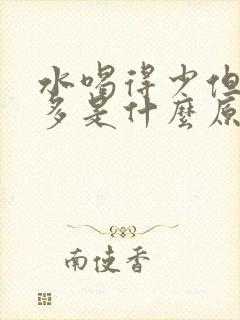 水喝得少但
多是什麼原
南使香